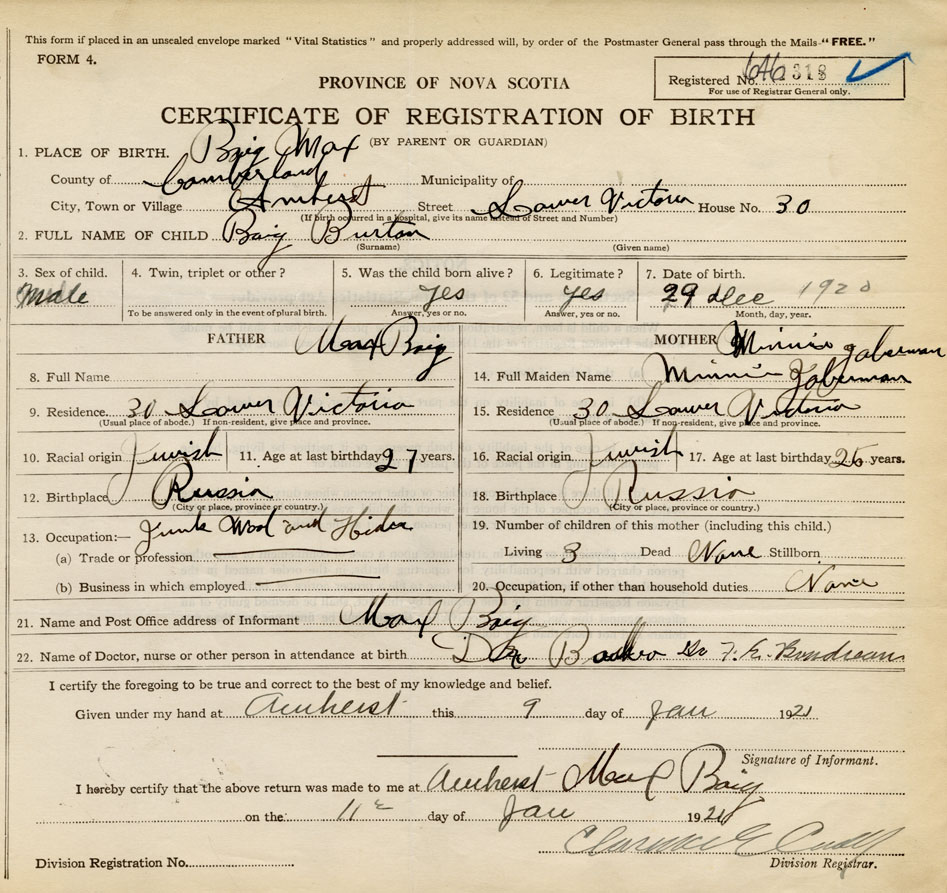 This form if placed in an unsealed envelope marked "Vital Statistics" and properly addressed will, by order of the Postmaster General pass through the Mails "FREE."
FORM 4.
PROVINCE OF NOVA SCOTIA
Registered No. 646318
For use of Registrar General only.
CERTIFICATE OF REGISTRATION OF BIRTH
(BY PARENT OR GUARDIAN)
1. PLACE OF BIRTH. Baig Max
County of Cumberland Municipality of
City, Town or Village Amherst Street Lower Victoria House No. 30
(If birth occurred in a hospital, give its name instead of Street and Number)
2. FULL NAME OF CHILD Baig Burton
(Surname) (Given name)
3. Sex of child. 4. Twin, triplet or other? 5. Was the child born alive? 6. Legitimate? 7. Date of birth.
Male yes yes 29 Dec 1920
To be answered only in the event of plural birth. Answer, yes or no. Answer, yes or no. Month, day, year.
FATHER Max Baig MOTHER Minnie Gaberman
8. Full Name 14. Full Maiden Name Minnie Gaberman
9. Residence 30 Lower Victoria 15. Residence 30 Lower Victoria
(Usual place of abode.) If non-resident, give place and province. (Usual place of abode.) If non-resident, give place and province.
10. Racial origin Jewish 11. Age at last birthday 27 years. 16. Racial origin Jewish 17. Age at last birthday 26 years.
12. Birthplace Russia 18. Birthplace Russia
(City or place, province or country.) (City or place, province or country.)
13. Occupation:— Junk Wool and Hides 19. Number of children of this mother (including this child.)
(a) Trade or profession Living 3 Dead None Stillborn
(b) Business in which employed 20. Occupation, if other than household duties None
21. Name and Post Office address of Informant Max Baig
22. Name of Doctor, nurse or other person in attendance at birth Dr
I certify the foregoing to be true and correct to the best of my knowledge and belief.
Given under my hand at Amherst this 9 day of Jan 1921
Signature of Informant.
I hereby certify that the above return was made to me at Amherst Max Baig
on the 11 day of Jan 1921
Division Registration No. Division Registrar.